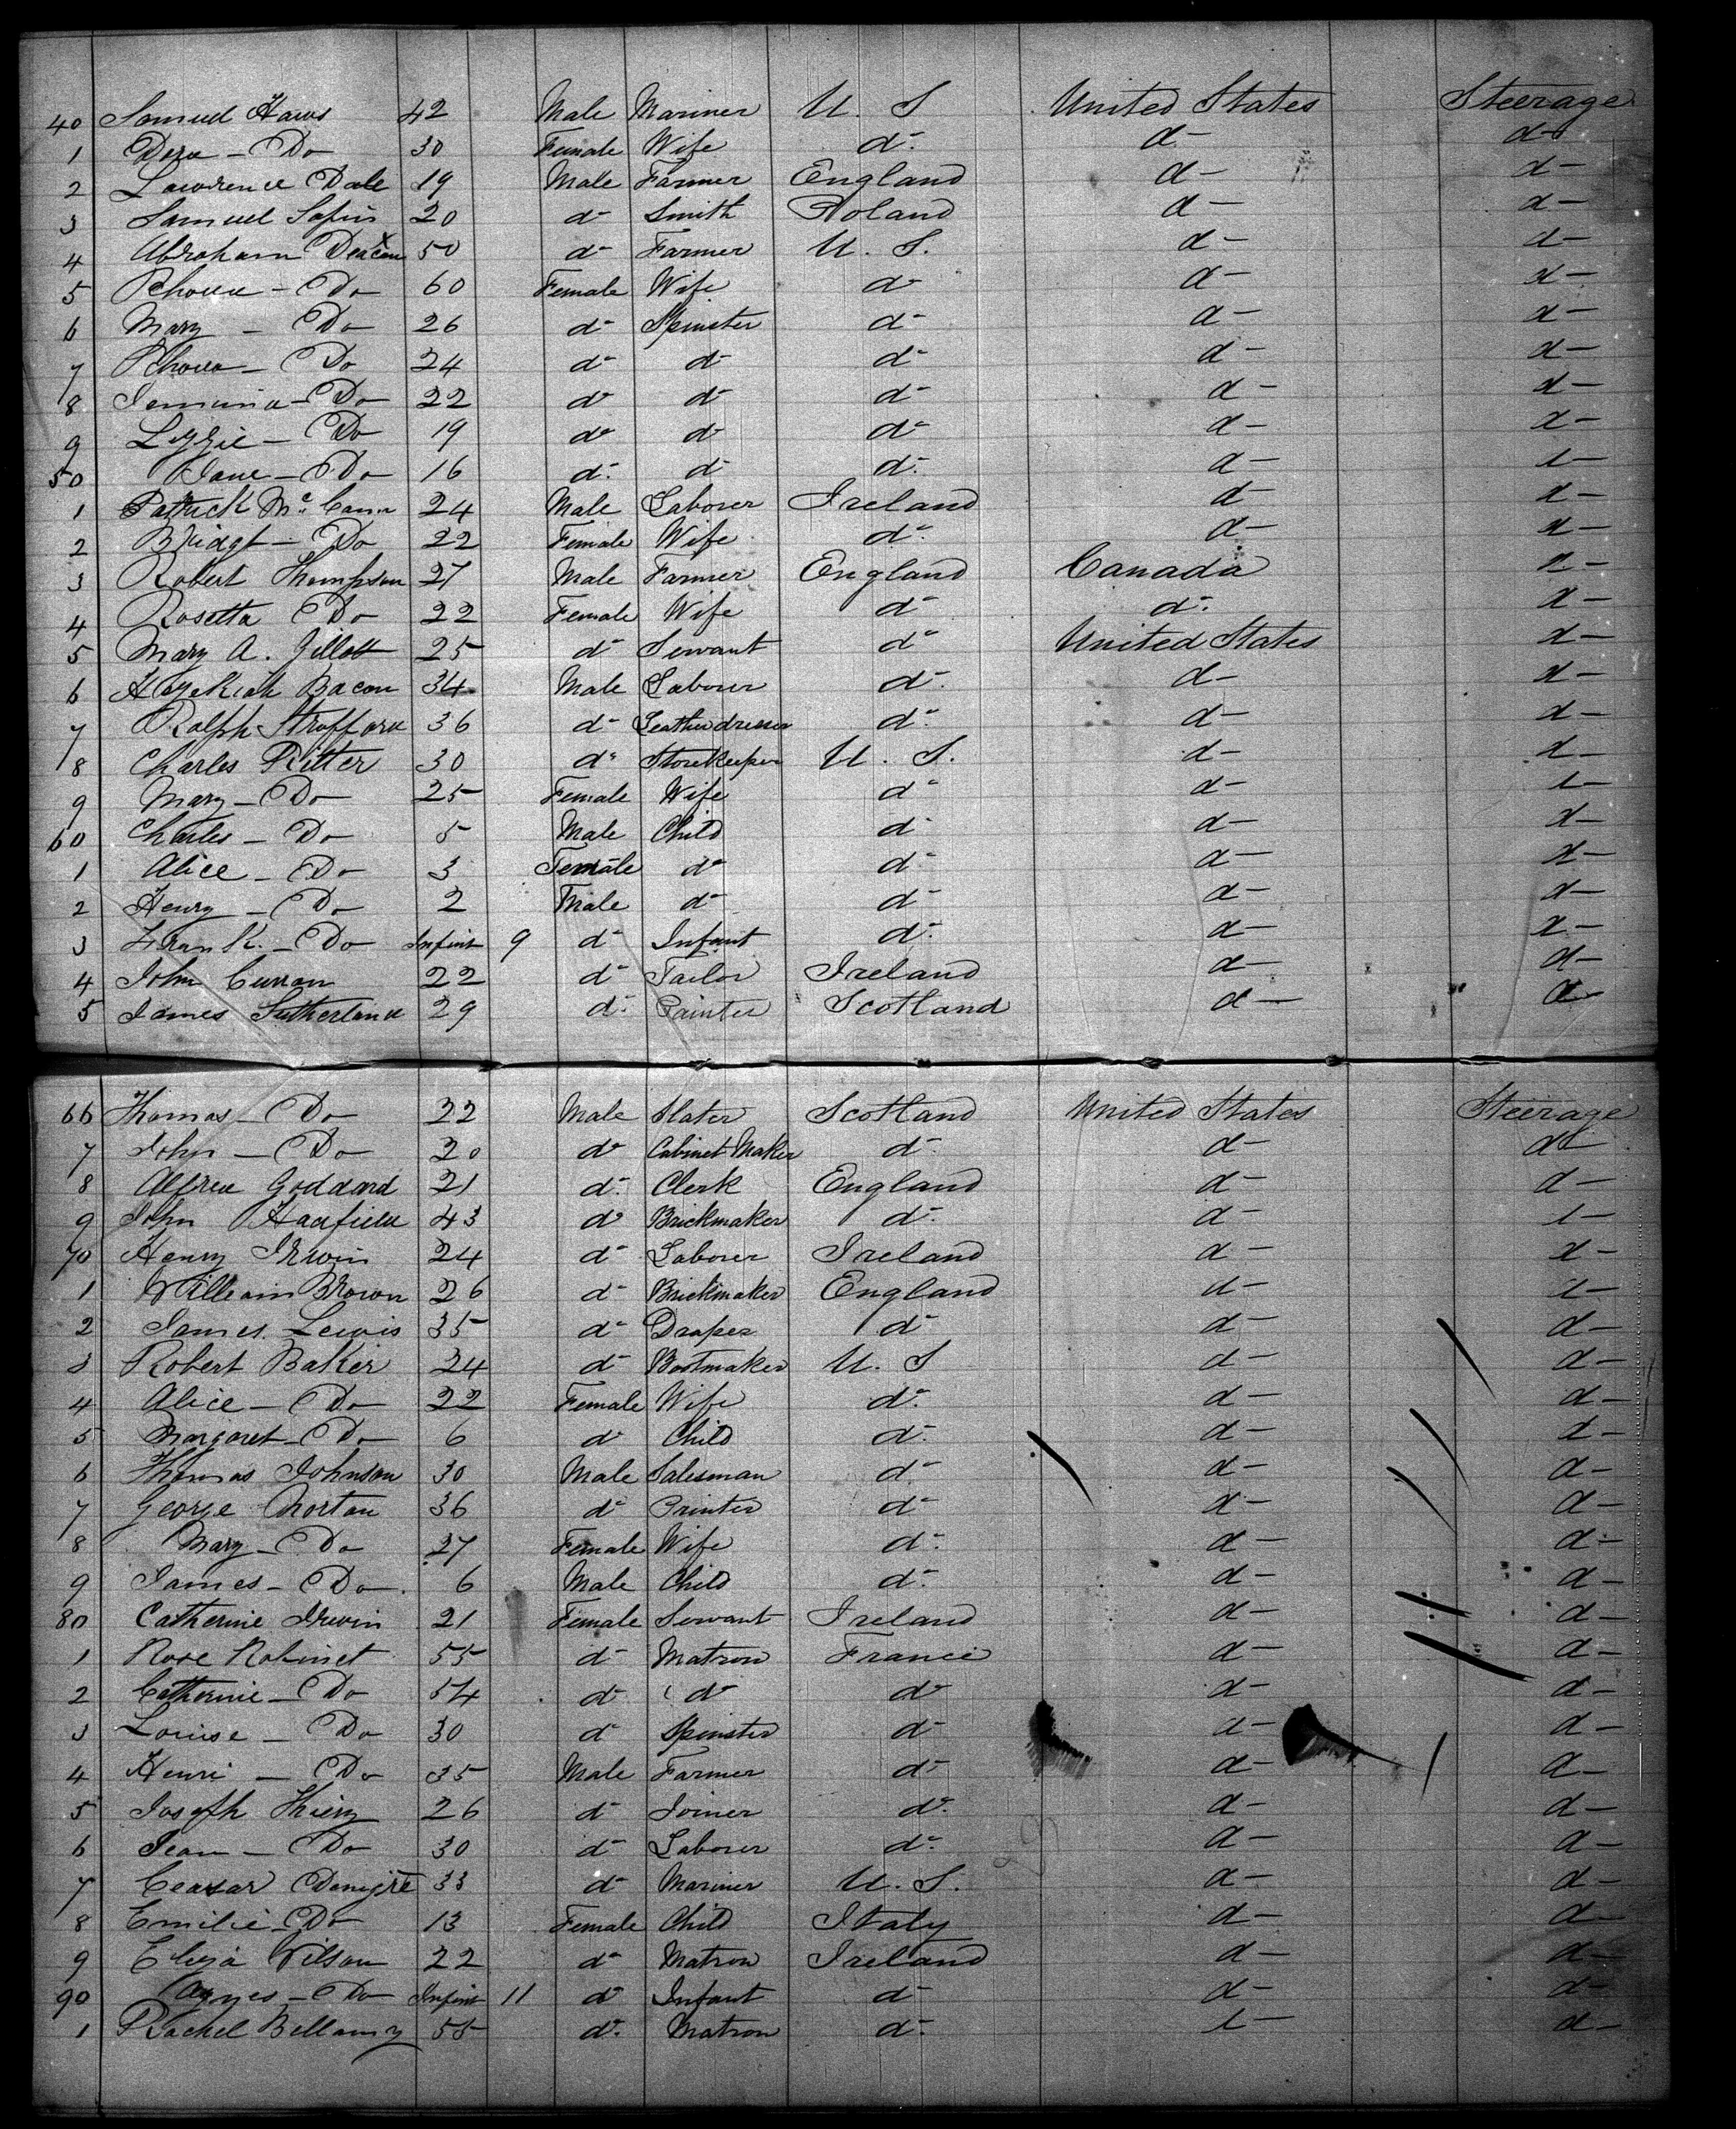 40 Samuel Haws 42 Male Mariner U. S United States Steerage
1 Dora - Do 30 Female Wife d- d- d-
2 Lawrence Dale 19 Male Farmer England d- d-
3 Samuel 20 d- Smith Poland d- d-
4 Abraham Deacon 50 d- Farmer U. S. d- d-
5 - Do 60 Female Wife d- d- d-
6 Mary - Do 26 d- Spinster d- d- d-
7 - Do 24 d- d- d- d- d-
8 Jemima - Do 22 d- d- d- d- d-
9 Lizzie - Do 19 d- d- d- d- d-
50 Jane - Do 16 d- d- d- d- d-
1 Patrick McCann 24 Male Laborer Ireland d- d-
2 Bridgt - Do 22 Female Wife d- d- d-
3 Robert Thompson 27 Male Farmer England Canada d-
4 Rosetta Do 22 Female Wife d- d- d-
5 Mary A. Gillott 25 d- Servant d- United States d-
6 Hezekiah Bacon 34 Male Laborer d- d- d-
7 Ralph Strafford 36 d- Leather dresser d- d- d-
8 Charles Ritter 30 d- Storekeeper U. S. d- d-
9 Mary - Do 25 Female Wife d- d- d-
60 Charles - Do 5 Male Child d- d- d-
1 Alice - Do 3 Female d- d- d- d-
2 Henry - Do 2 Male d- d- d- d-
3 Frank. - Do Infant 9 d- Infant d- d- d-
4 John Curran 22 d- Tailor Ireland d- d-
5 James Sutherland 29 d- Painter Scotland d- d-
66 Thomas - Do 22 Male Slater Scotland United States Steerage
7 John - Do 20 d- Cabinet Maker d- d- d-
8 Alfred Goddard 21 d- Clerk England d- d-
9 John Hadfield 43 d- Brickmaker d- d- d-
70 Henry Irwin 24 d- Laborer Ireland d- d-
1 William Brown 26 d- Brickmaker England d- d-
2 James Lewis 35 d- Draper d- d- d-
3 Robert Baker 24 d- Bootmaker U. S d- d-
4 Alice - Do 22 Female Wife d- d- d-
5 Margaret - Do 6 d- Child d- d- d-
6 Thomas Johnson 30 Male Salesman d- d- d-
7 George Norton 36 d- Printer d- d- d-
8 Mary - Do 27 Female Wife d- d- d-
9 James - Do 6 Male Child d- d- d-
80 Catherine Irwin 21 Female Servant Ireland d- d-
1 Rose Robinet 55 d- Matron France d- d-
2 Catherine - Do 54 d- d- d- d- d-
3 Louise - Do 30 d- Spinster d- d- d-
4 Henri - Do 35 Male Farmer d- d- d-
5 Joseph Thiery 26 d- Joiner d- d- d-
6 Jean - Do 30 d- Laborer d- d- d-
7 Ceasar 33 d- Mariner U. S. d- d-
8 Emilie - Do 13 Female Child Italy d- d-
9 Eliza Wilson 22 d- Matron Ireland d- d-
90 Agnes - Do Infant 11 d- Infant d- d- d-
1 Rachel Bellamy 55 d- Matron d- d- d-